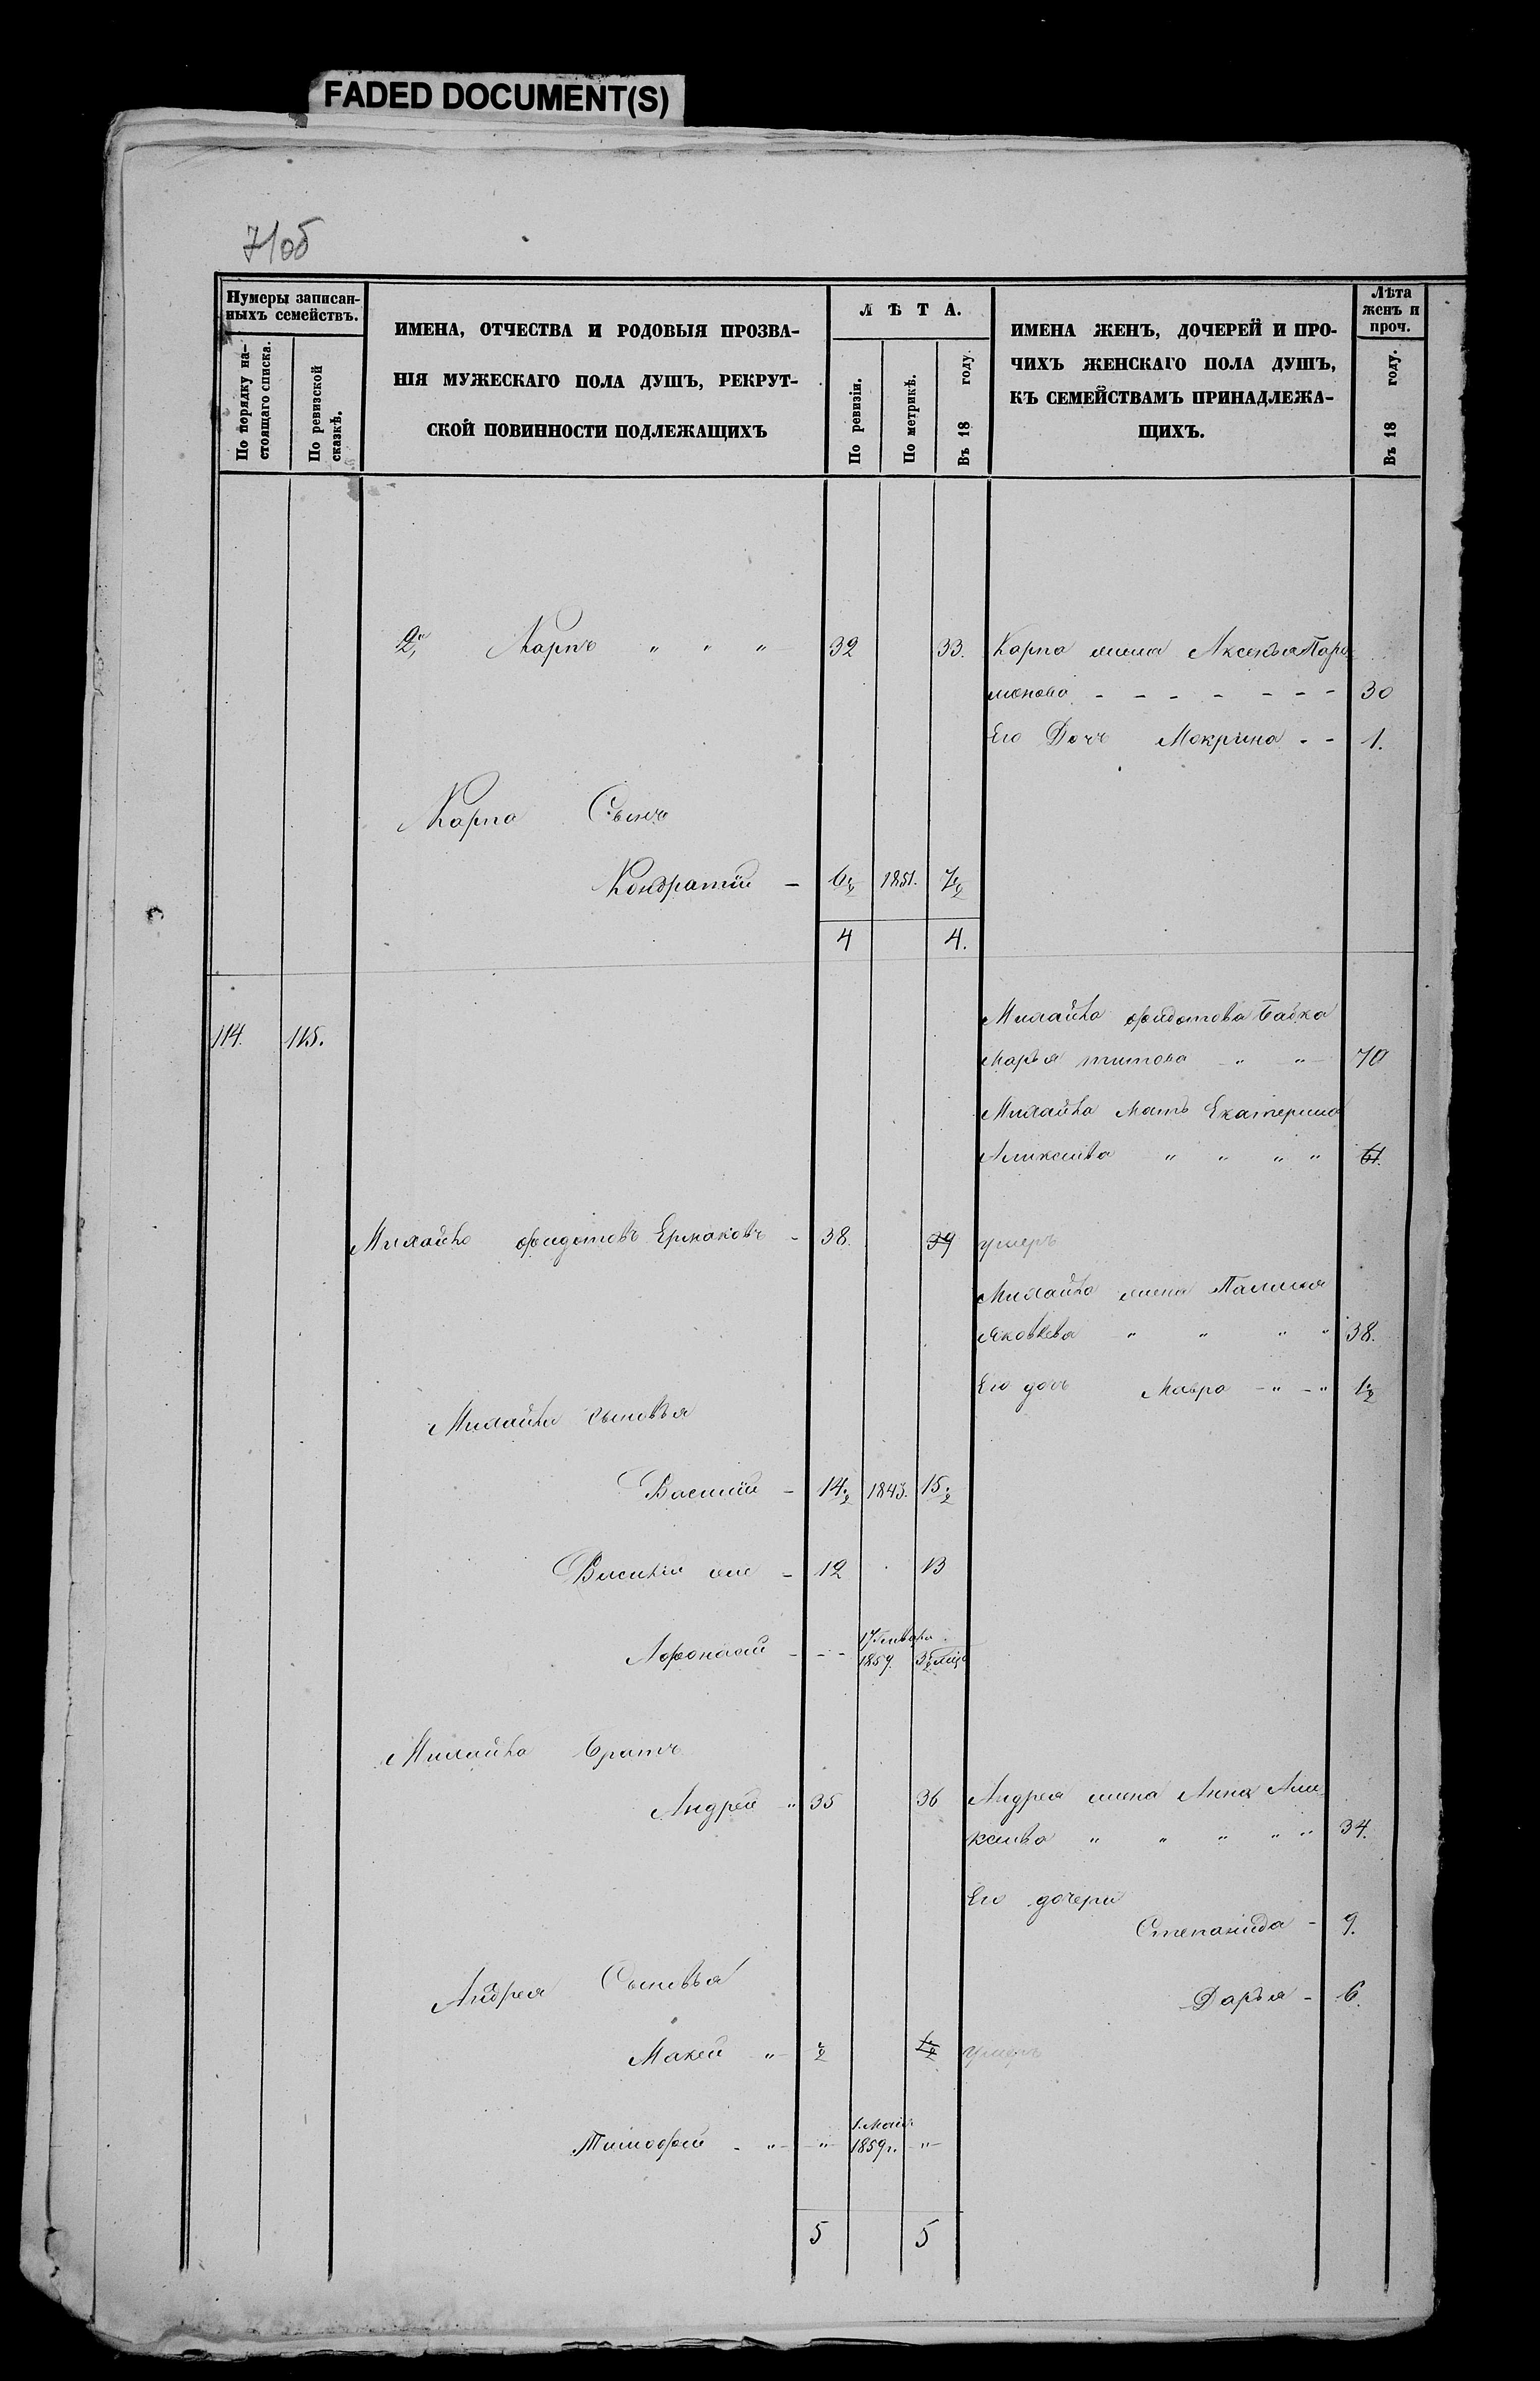 FADED DOCUMENT(S)
71об
Нумеры записан-
ныхъ семействъ.
По порядку на-
стоящаго списка.
По ревизской
сказкѣ.
ИМЕНА, ОТЧЕСТВА И РОДОВЫЯ ПРОЗВА-
НІЯ МУЖЕСКАГО ПОЛА ДУШЪ, РЕКРУТ-
СКОЙ ПОВИННОСТИ ПОДЛЕЖАЩИХЪ
ЛѢТА.
По ревизіи.
По метрикѣ.
Въ 18 году.
ИМЕНА ЖЕНЪ, ДОЧЕРЕЙ И ПРО-
ЧИХЪ ЖЕНСКАГО ПОЛА ДУШЪ,
КЪ СЕМЕЙСТВАМЪ ПРИНАДЛЕЖА-
ЩИХЪ.
Лѣта
женъ и
проч.
Въ 18 году.
2й Карпъ " " " 32 33. Карпа жена Аксенья Пара-
монова - - - - - - - 30
Его Дочь Макрина - - 1.
Карпа Сынъ
Кондратій - 6½ 1851. 7½
4 4.
114. 115. Михайла Федотова Бабка
Марья Титова " " 70
Михайла Мать Екатерина
Аликсеива " " " " 61.
Михайло Федотовъ Ермаковъ - 38. 39 умеръ
Михайла жена Палагия
Яковлева " " " " 38.
Его дочь Мавра - " - " 1½
Михайлы сыновья
Василій - 14½ 1843. 15½
Василій же - 12 13
Афонасій - - - 17 Генваря
1859. 3½ мѣс
Михайла братъ
Андрей " 35 36 Андрея жена Анна Али-
ксеива " " " " " 34.
Его дочери
Степанида - 9.
Андрея Сыновья
Дарья - 6.
Макей " ½ 1½ умеръ
Тимофей - " - " 1. Мая
1859 г. "
5 5